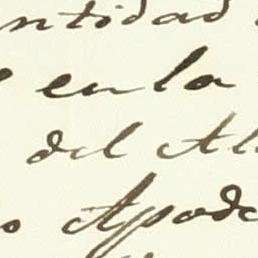 ntidad
en la
del Al
o Apode